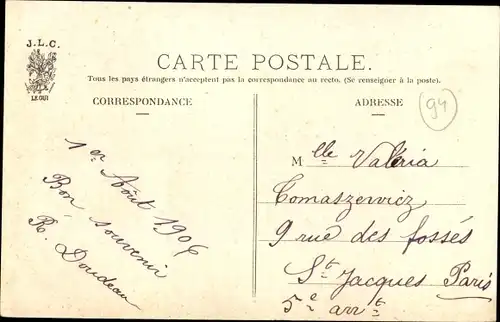 J.L.C.
LE GUI
CARTE POSTALE.
Tous les pays étrangers n'acceptent pas la correspondance au recto. (Se renseigner à la poste).
CORRESPONDANCE
ADRESSE
94
1er Août 1906
Bon souvenir
R. Doudeau
Mlle Valéria
Tomaszewicz
9 rue des fossés
St Jacques Paris
5e arrt